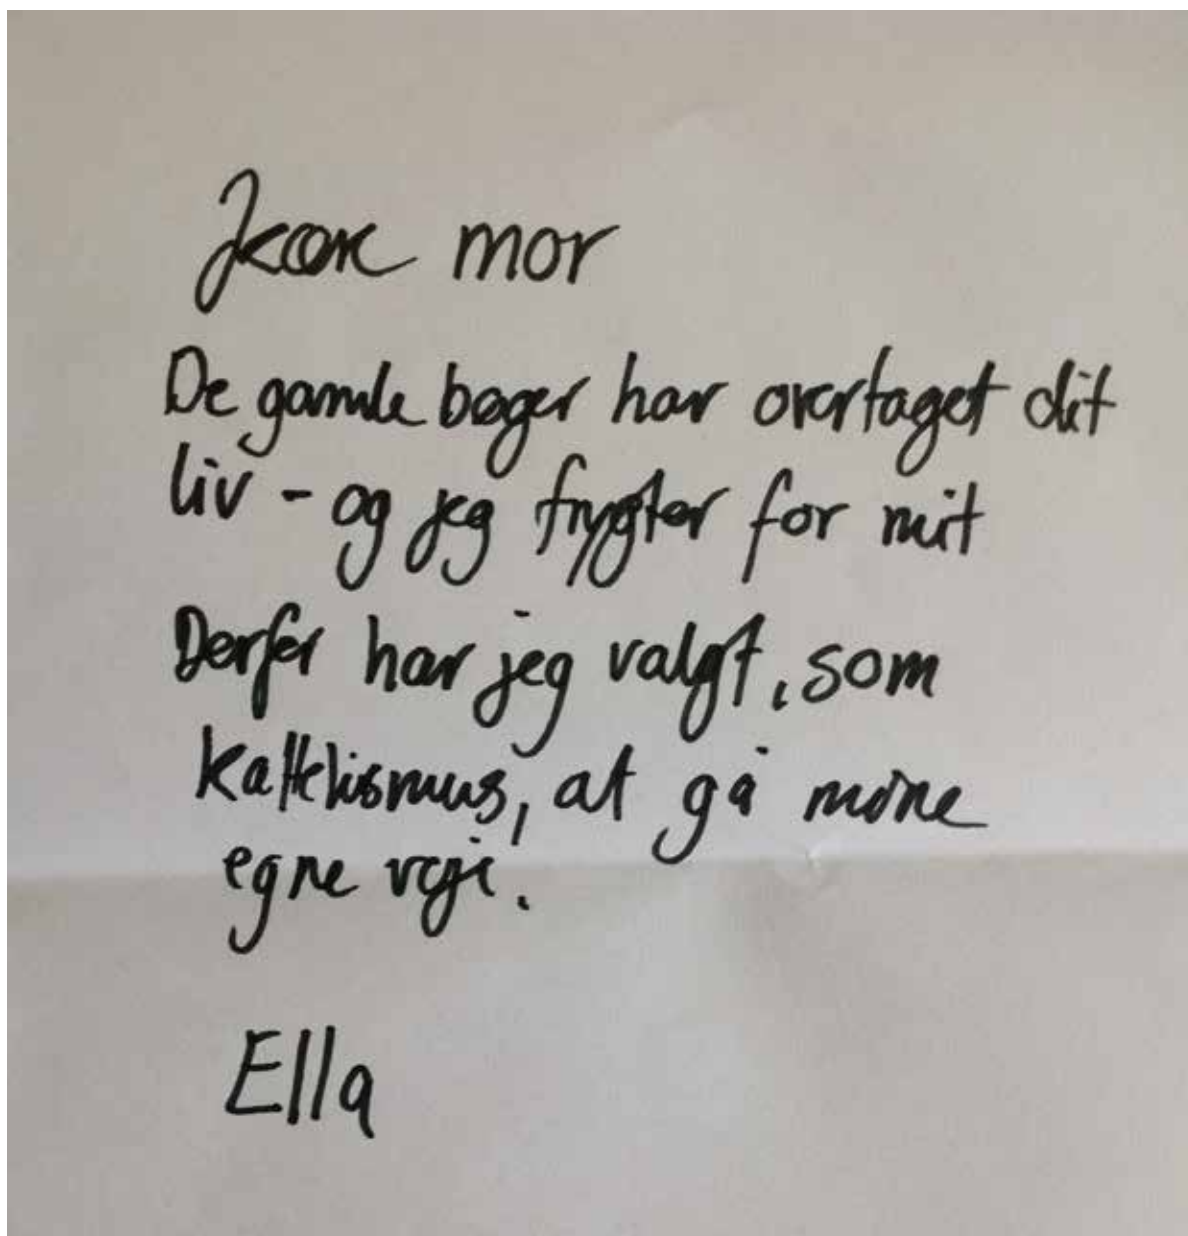 Kære mor
De gamle bøger har overtaget dit
liv - og jeg frygter for mit
Derfor har jeg valgt, som
kattekismus, at gå mine
egne veje.
Ella